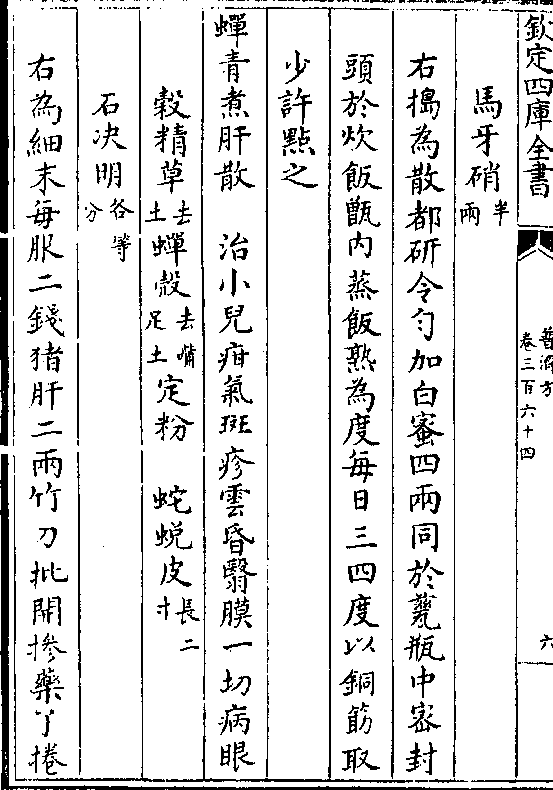 欽定四庫全書
普濟方
卷三百六十四
六
馬牙硝半兩
右搗為散都研令勻加白蜜四兩同於甆瓶中密封
頭於炊飯甑內蒸飯熟為度每日三四度以銅筯取
少許㸃之
蟬青煮肝散　治小兒疳氣斑疹雲昏翳膜一切病眼
穀精草去土蟬殻去嘴足土定粉　蛇蛻皮長二寸
石决明各等分
右為細末每服二錢猪肝二兩竹刀批開摻藥了捲